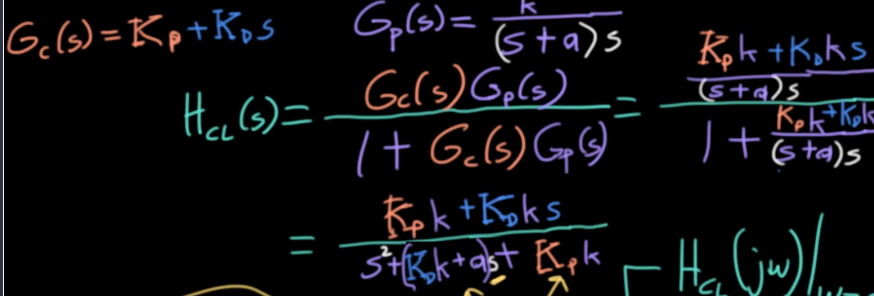 G_c(s) = K_p + K_D s
G_p(s) = k / ((s + a) s)
H_CL(s) = G_c(s) G_p(s) / (1 + G_c(s) G_p(s)) = ((K_p k + K_D k s) / ((s + a) s)) / (1 + (K_p k + K_D k) / ((s + a) s))
= (K_p k + K_D k s) / (s² + (K_D k + a) s + K_p k)
H_CL(jw)|